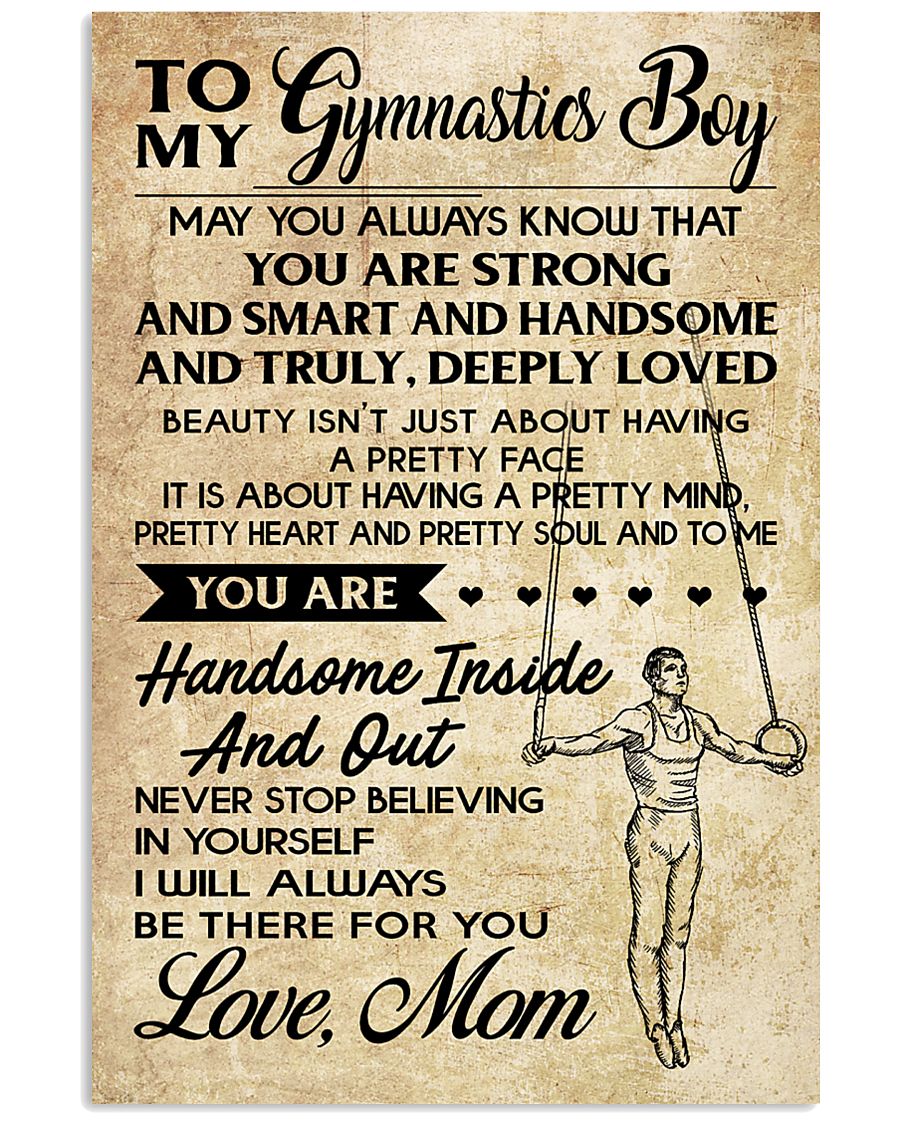 TO MY Gymnastics Boy
MAY YOU ALWAYS KNOW THAT
YOU ARE STRONG
AND SMART AND HANDSOME
AND TRULY, DEEPLY LOVED
BEAUTY ISN'T JUST ABOUT HAVING
A PRETTY FACE
IT IS ABOUT HAVING A PRETTY MIND,
PRETTY HEART AND PRETTY SOUL AND TO ME
YOU ARE
Handsome Inside
And Out
NEVER STOP BELIEVING
IN YOURSELF
I WILL ALWAYS
BE THERE FOR YOU
Love, Mom